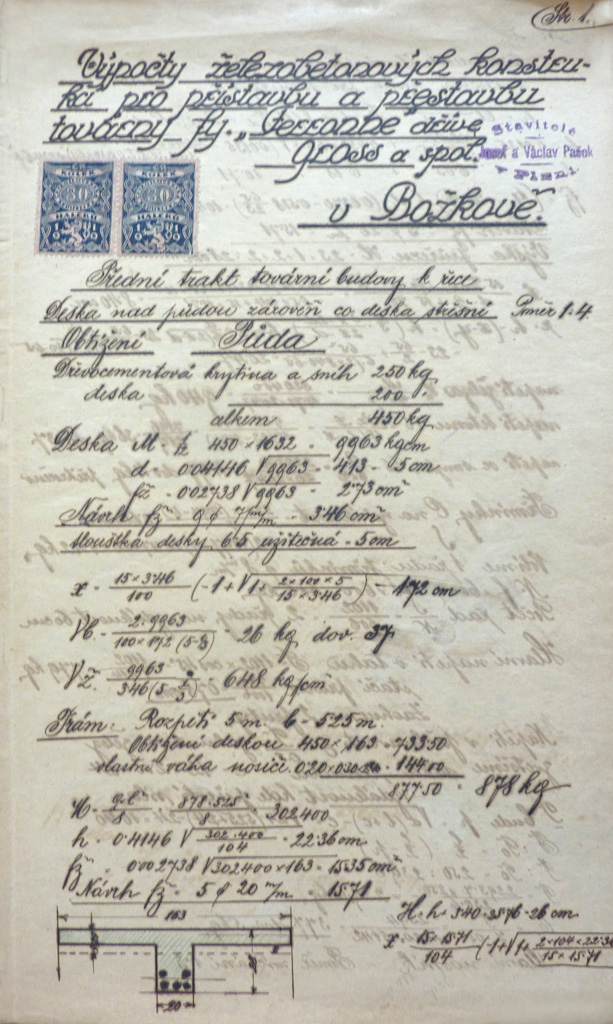 Str. 1.
Výpočty železobetonových konstruk-
cí pro přístavbu a přestavbu
továrny fy.
dříve
Gloss a spol.
v Božkově.
Stavitelé
Josef a Václav Pašek
v Plzni
KOLEK KOLEK
30 30
HALÉŘŮ HALÉŘŮ
19 19
Přední trakt tovární budovy k řece
Deska nad půdou zároveň co deska střešní Poměr 1:4
Obtížení Půda
Dřevocementová krytina a sníh 250 kg
deska 200
celkem 450 kg.
Deska M = 450 × 1.63² = 9963 kgcm
d = 0.04146 √9963 = 4.13 = 5 cm
fž = 0.02738 √9963 = 2.73 cm²
Návrh fž = 9 ϕ 7 m/m = 3.46 cm²
tlouštka desky 6.5 užitečná = 5 cm
x = 15 × 3.46 / 100 (-1 + √1 + 2 × 100 × 5 / 15 × 3.46) = 1.72 cm
Vb = 2 . 9963 / 100 × 1.72 = 26 kg dov. 37
Vž = 9963 / 3.46 = 648 kg/cm
Trám: Rozpětí 5 m. l = 5.25 m.
Obtížení deskou 450 × 1.63 = 733.50
vlastní váha nosiče = 144.00
877.50 = 878 kg
M = 878 . 5.25² / 8 = 302400
h = 0.4146 √302.400 / 104 = 22.36 cm
fž = 0.002738 √302400 × 163 = 15.35 cm²
Návrh fž = 5 ϕ 20 m/m = 15.71
H = h + 3.40 = 26 cm
x = 15 × 15.71 / 104 (-1 + √1 + 2 × 104 × 22.36 / 15 × 15.71
163
20